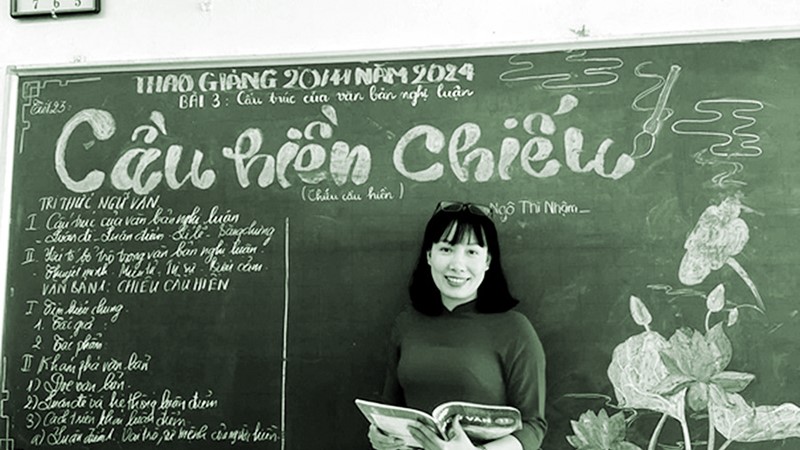 7 6 5
THAO GIẢNG 20/11 NĂM 2024
Tiết 23:
BÀI 3: Cấu trúc của văn bản nghị luận
Cầu hiền chiếu
(Chiếu cầu hiền)
Ngô Thì Nhậm
TRI THỨC NGỮ VĂN
I Cấu trúc của văn bản nghị luận
- Luận đề - Luận điểm - Lí lẽ - Bằng chứng
II Yếu tố bổ trợ trong văn bản nghị luận
- Thuyết minh, Miêu tả, Tự sự, Biểu cảm
VĂN BẢN 1: CHIẾU CẦU HIỀN
I Tìm hiểu chung
1. Tác giả
2. Tác phẩm
II Khám phá văn bản
1) Đọc văn bản
2) Luận đề và hệ thống luận điểm
3) Cách triển khai luận điểm
a) Luận điểm 1. Vai trò, sứ mệnh của người hiền
VĂN 11